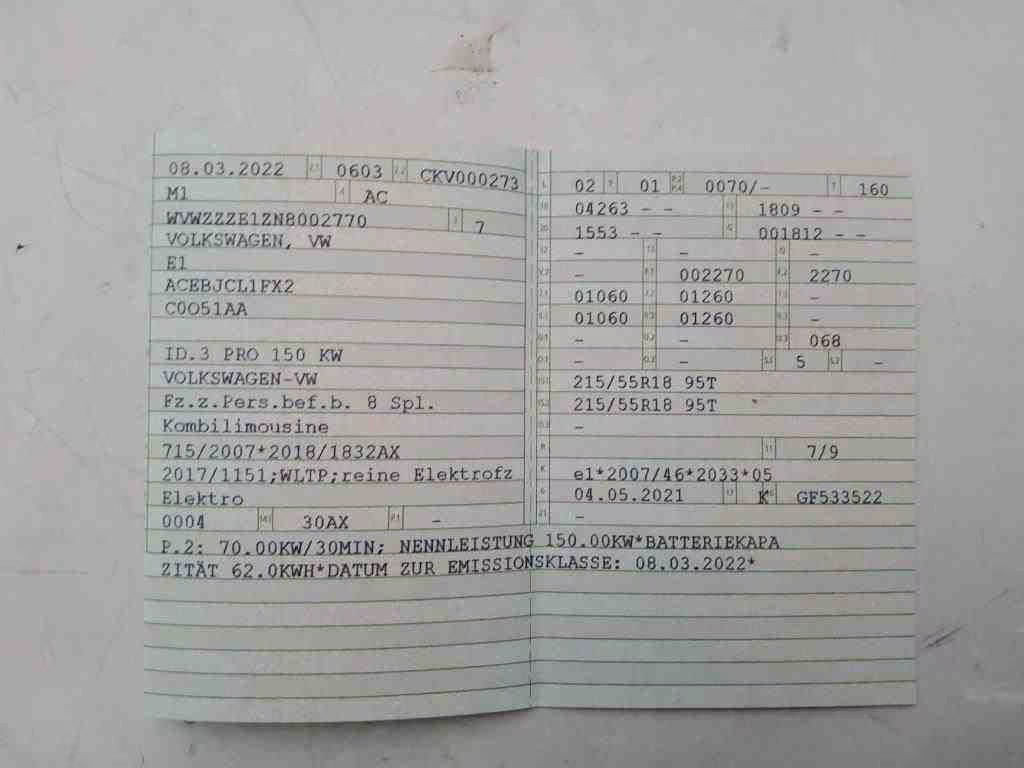 08.03.2022 2.1 0603 2.2 CKV000273
M1 4 AC
WVWZZZE1ZN8002770 3 7
VOLKSWAGEN, VW
E1
ACEBJCL1FX2
C0O51AA
ID.3 PRO 150 KW
VOLKSWAGEN-VW
Fz.z.Pers.bef.b. 8 Spl.
Kombilimousine
715/2007*2018/1832AX
2017/1151;WLTP;reine Elektrofz
Elektro
0004 30AX P.1 -
L 02 9 01 P.2 P.4 0070/- T 160
18 04263 - - 19 1809 - -
20 1553 - - G 001812 - -
12 - 13 - Q -
V.7 - F.1 002270 F.2 2270
7.1 01060 7.2 01260 7.3 -
8.1 01060 8.2 01260 8.3 -
U.1 - U.2 - U.3 068
O.1 - O.2 - S.1 5 S.2 -
15.1 215/55R18 95T
15.2 215/55R18 95T
15.3 -
R 11 7/9
K e1*2007/46*2033*05
6 04.05.2021 17 K 16 GF533522
21 -
P.2: 70.00KW/30MIN; NENNLEISTUNG 150.00KW*BATTERIEKAPA
ZITÄT 62.0KWH*DATUM ZUR EMISSIONSKLASSE: 08.03.2022*